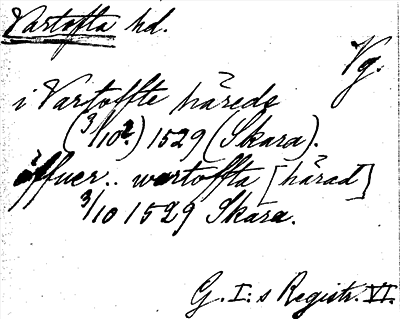 Vartofta hd.
Vg.
i Vartoffte härede
(3/10 2.) 1529 (Skara).
öffuer.. wartoffta [härad]
3/10 1529 Skara.
G. I:s Registr. VI.